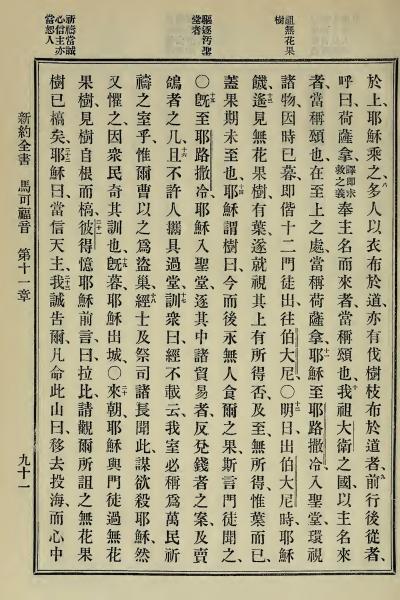 詛無花果
樹
驅逐汚聖
堂者
祈禱當誠
心信主亦
當恕人
於上耶穌乘之、八多人以衣布於道、亦有伐樹枝布於道者、九前行後從者、
呼曰、荷薩拿、譯即求救之義奉主名而來者、當稱頌也、十我祖大衛之國、以主名來
者、當稱頌也、在至上之處、當稱荷薩拿、十一耶穌至耶路撒冷、入聖堂、環視
諸物、因時已暮、即偕十二門徒出、往伯大尼、〇十二明日出伯大尼時、耶穌
饑、十三遙見無花果樹有葉、遂就視其上有所得否、及至、無所得、惟葉而已、
蓋果期未至也、十四耶穌謂樹曰、今而後永無人食爾之果、斯言門徒聞之、
〇十五旣至耶路撒冷、耶穌入聖堂、逐其中諸貿易者、反兌錢者之案、及賣
鴿者之几、十六且不許人攜具過堂、十七訓衆曰、經不載云、我室必稱爲萬民祈
禱之室乎、惟爾曹以之爲盜巢、十八經士及祭司諸長聞此、謀欲殺耶穌、然
又懼之、因衆民奇其訓也、十九旣暮、耶穌出城、〇二十來朝、耶穌與門徒過無花
果樹、見樹自根而槁、二十一彼得憶耶穌前言、曰、拉比、請觀爾所詛之無花果
樹已槁矣、二十二耶穌曰、當信天主、二十三我誠告爾、凡命此山曰、移去投海、而心中
新約全書 馬可福音 第十一章 九十一